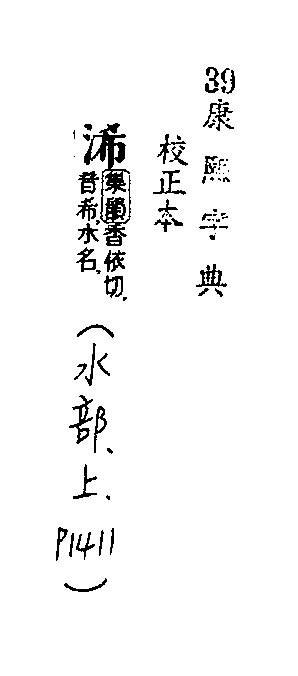 39康熙字典
校正本
浠
集韻香依切.
音希.水名.
(水部、上、P1411)